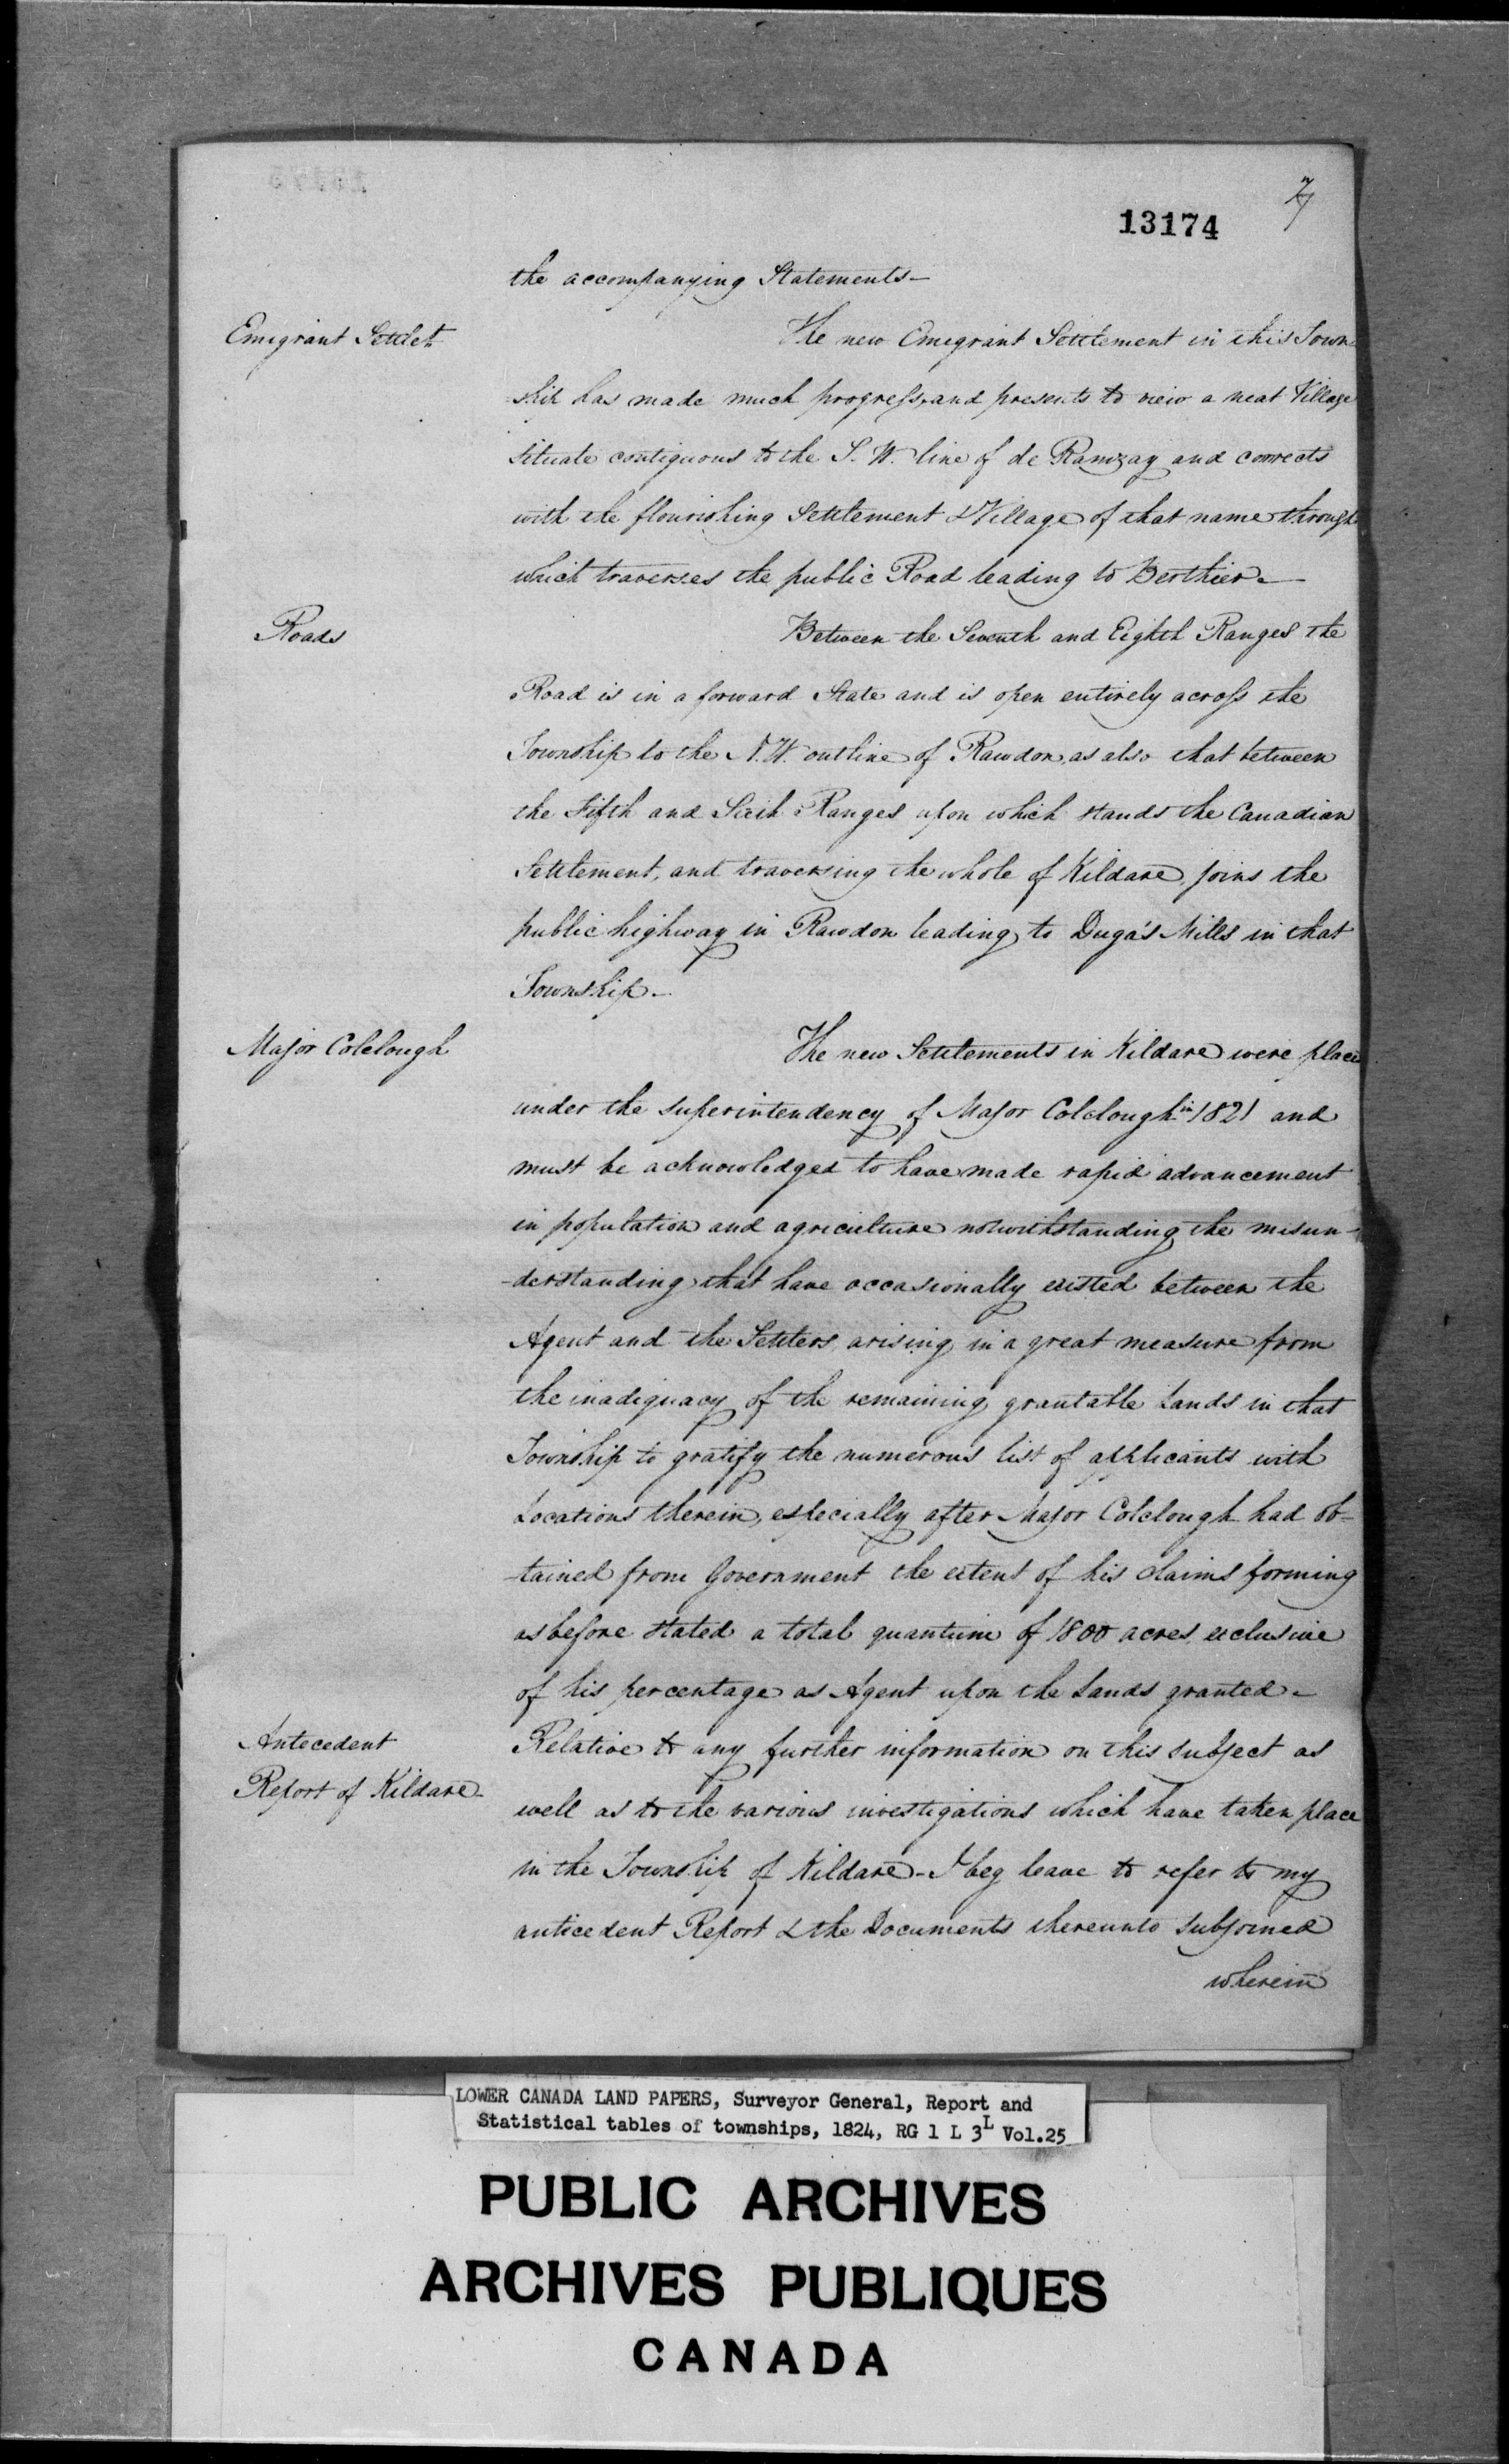 7
13174
the accompanying Statements—
Emigrant Settlet
The new Emigrant Settlement in this Town-
-ship has made much progress, and presents to view a neat Village
situate contiguous to the S. W. line of de Ramzay and connects
with the flourishing Settlement & Village of that name through
which traverses the public Road leading to Berthier—
Roads
Between the Seventh and Eighth Ranges the
Road is in a forward State and is open entirely across the
Township to the N. W. outline of Rawdon, as also that between
the Fifth and Sixth Ranges upon which stands the Canadian
Settlement, and traversing the whole of Kildare, joins the
public highway in Rawdon leading to Duga's Mills in that
Township—
Major Colclough
The new Settlements in Kildare were place
under the superintendency of Major Colclough in 1821 and
must be acknowledged to have made rapid advancement
in population and agriculture notwithstanding the misun-
-derstanding that have occasionally existed between the
Agent and the Settlers, arising in a great measure from
the inadiquacy of the remaining grantable Lands in that
Township to gratify the numerous list of applicants with
Locations therein, especially after Major Colclough had ob-
-tained from Government the extent of his claims forming
as before stated a total quantum of 1800 acres exclusive
of his percentage as Agent upon the Lands granted—
Antecedent
Report of Kildare—
Relative to any further information on this subject as
well as to the various investigations which have taken place
in the Township of Kildare—I beg leave to refer to my
anticedent Report & the Documents thereunto subjoined
wherein
LOWER CANADA LAND PAPERS, Surveyor General, Report and
Statistical tables of townships, 1824, RG 1 L 3L Vol.25
PUBLIC ARCHIVES
ARCHIVES PUBLIQUES
CANADA